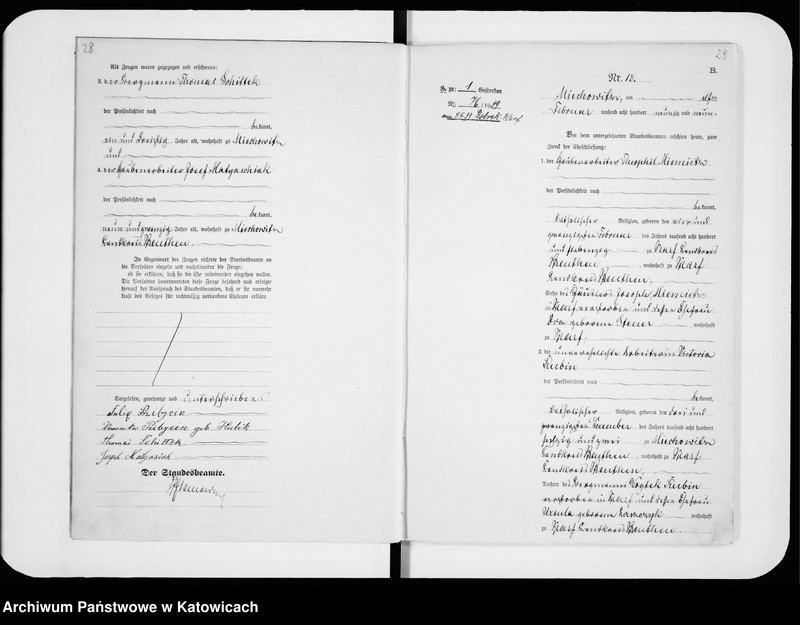 28
Als Zeugen waren zugezogen und erschienen:
3. der Bergmann Thomas Schittek
der Persönlichkeit nach
bekannt,
ein und dreißig Jahre alt, wohnhaft zu Miechowitz
und
4. der Grubenarbeiter Josef Matyaschiak
der Persönlichkeit nach
bekannt,
neun und zwanzig Jahre alt, wohnhaft zu Miechowitz
Landkreis Beuthen.
In Gegenwart der Zeugen richtete der Standesbeamte an
die Verlobten einzeln und nacheinander die Frage:
ob sie erklären, daß sie die Ehe miteinander eingehen wollen.
Die Verlobten beantworteten diese Frage bejahend und erfolgte
hierauf der Ausspruch des Standesbeamten, daß er sie nunmehr
kraft des Gesetzes für rechtmäßig verbundene Eheleute erkläre.
Vorgelesen, genehmigt und unterschrieben
geb Hubik
Thomas Schittek
Joseph
Der Standesbeamte.
29
B.
Nr. 12.
B. zu: 1 Gestorben
Nr.
Miechowitz, am elften
Februar tausend acht hundert neunzig und neun.
Vor dem unterzeichneten Standesbeamten erschien heute, zum
Zweck der Eheschließung:
1. der Grubenarbeiter Theophil
der Persönlichkeit nach
bekannt,
katholischer Religion, geboren den vier und
zwanzigsten Februar des Jahres tausend acht hundert
und siebenzig zu Karf Landkreis
Beuthen, wohnhaft zu Karf
Landkreis Beuthen,
Sohn des Häuslers Joseph
in Karf verstorben und dessen Ehefrau
Eva geborene Steuer wohnhaft
zu Karf,
2. die unverehelichte Arbeiterin Victoria
Kubin
der Persönlichkeit nach
bekannt,
katholischer Religion, geboren den drei und
zwanzigsten Dezember des Jahres tausend acht hundert
und zwei zu Miechowitz
Landkreis Beuthen, wohnhaft zu Karf
Landkreis Beuthen,
Tochter des Bergmanns Woytek Kubin
verstorben in Karf und dessen Ehefrau
Ursula geborene wohnhaft
zu Karf Landkreis Beuthen.
Archiwum Państwowe w Katowicach